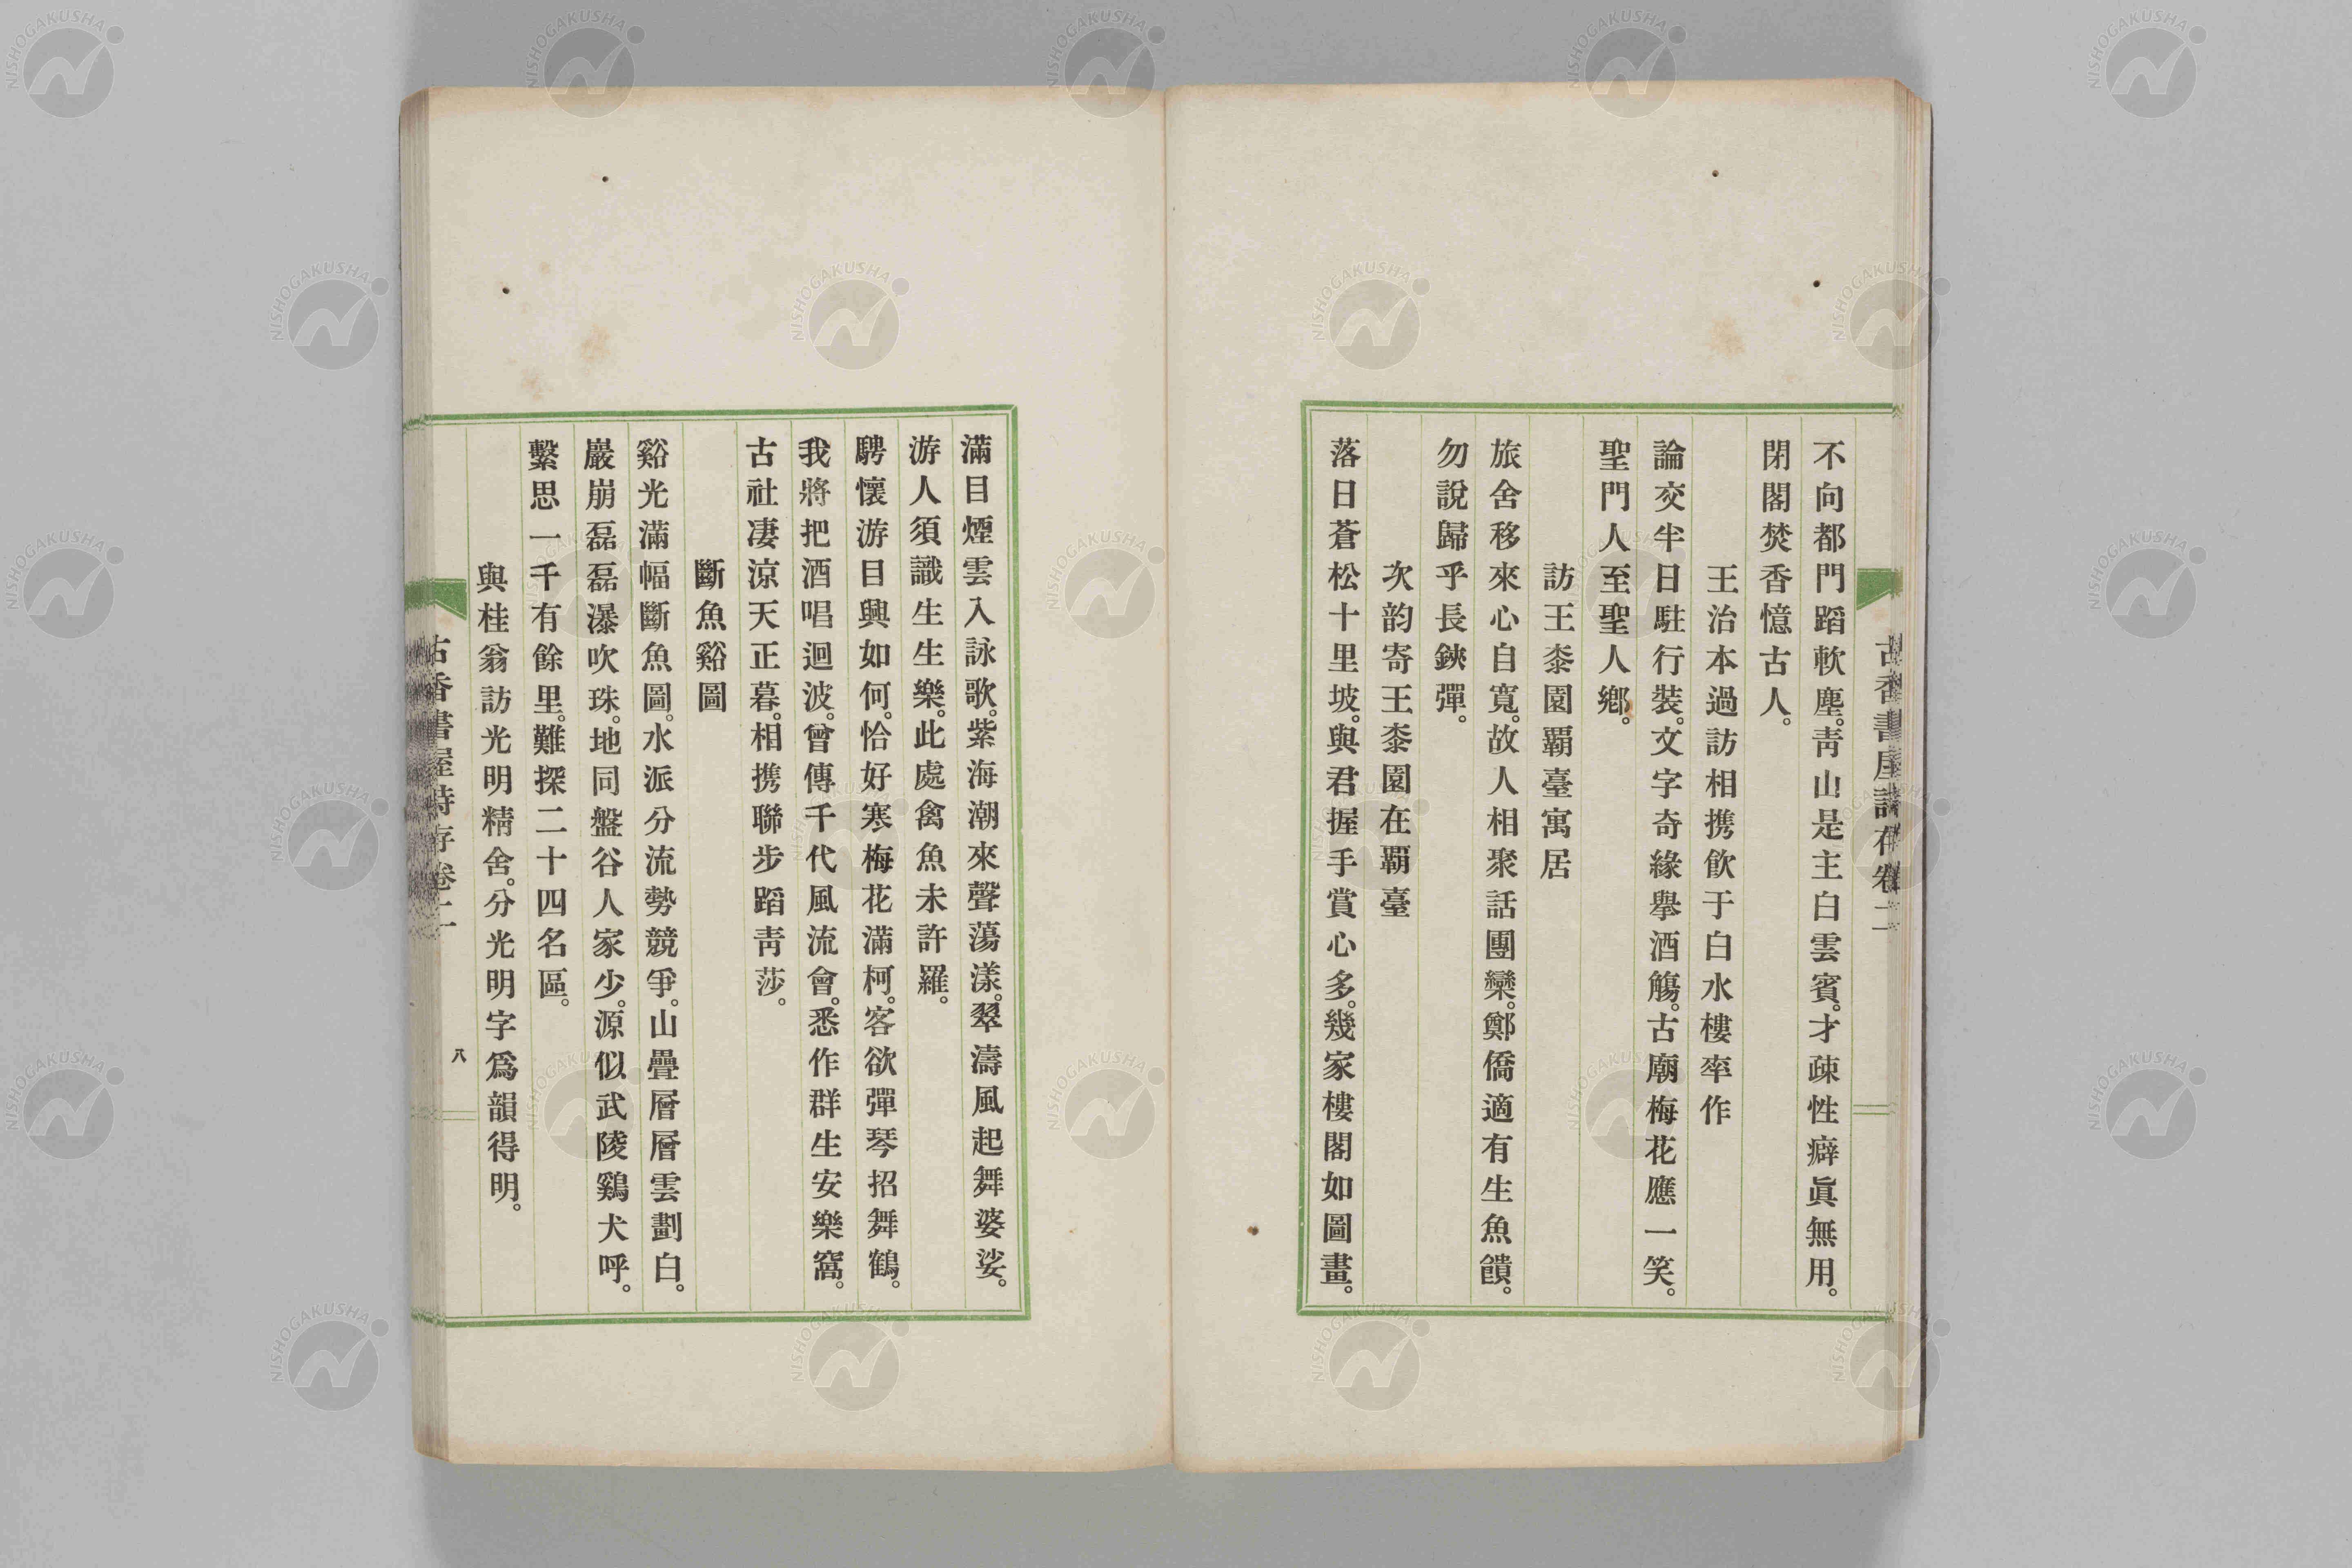 古香書屋詩存卷二
不向都門蹈軟塵。靑山是主白雲賓。才疎性癖眞無用。
閉閣焚香憶古人。
王治本過訪相携飮于白水樓率作
論交半日駐行裝。文字奇緣擧酒觴。古廟梅花應一笑。
聖門人至聖人鄕。
訪王桼園覇臺寓居
旅舍移來心自寬。故人相聚話團欒。鄭僑適有生魚饋。
勿說歸乎長鋏彈。
次韵寄王桼園在覇臺
落日蒼松十里坡。與君握手賞心多。幾家樓閣如圖畫。
滿目煙雲入詠歌。紫海潮來聲蕩漾。翠濤風起舞婆娑。
游人須識生生樂。此處禽魚未許羅。
騁懷游目興如何。恰好寒梅花滿柯。客欲彈琴招舞鶴。
我將把酒唱迴波。曾傳千代風流會。悉作群生安樂窩。
古社凄涼天正暮。相携聯步蹈靑莎。
斷魚谿圖
谿光滿幅斷魚圖。水派分流勢競爭。山疊層層雲劃白。
巖崩磊磊瀑吹珠。地同盤谷人家少。源似武陵鷄犬呼。
繫思一千有餘里。難探二十四名區。
與桂翁訪光明精舍。分光明字爲韻得明。
古香書屋詩存卷二
八
NISHOGAKUSHA